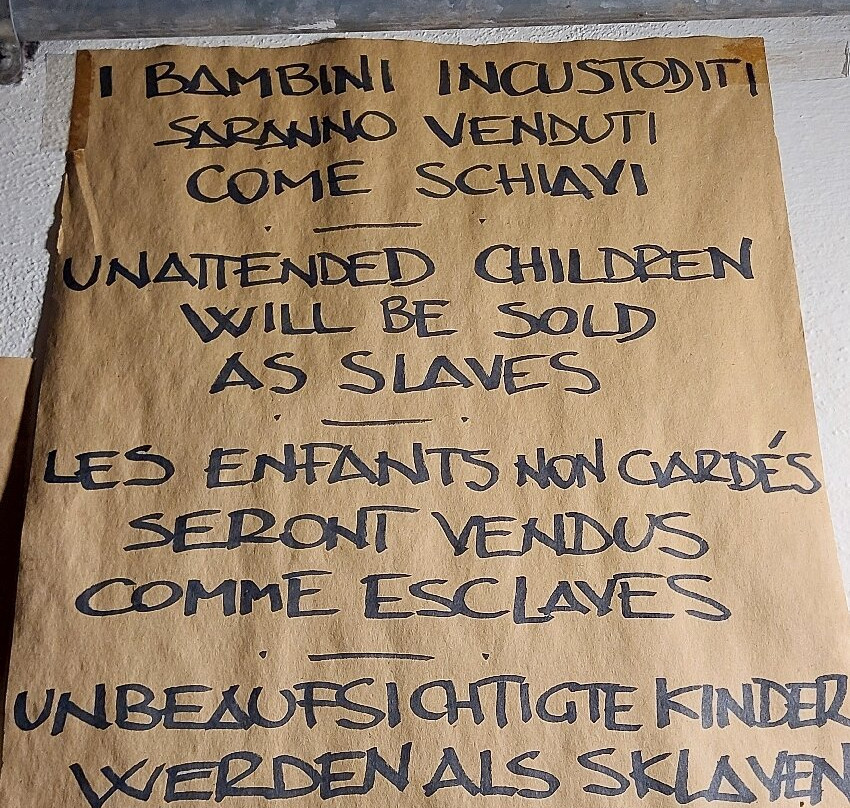 I BAMBINI INCUSTODITI
SARANNO VENDUTI
COME SCHIAVI
UNATTENDED CHILDREN
WILL BE SOLD
AS SLAVES
LES ENFANTS NON GARDÉS
SERONT VENDUS
COMME ESCLAVES
UNBEAUFSICHTIGTE KINDER
WERDEN ALS SKLAVEN